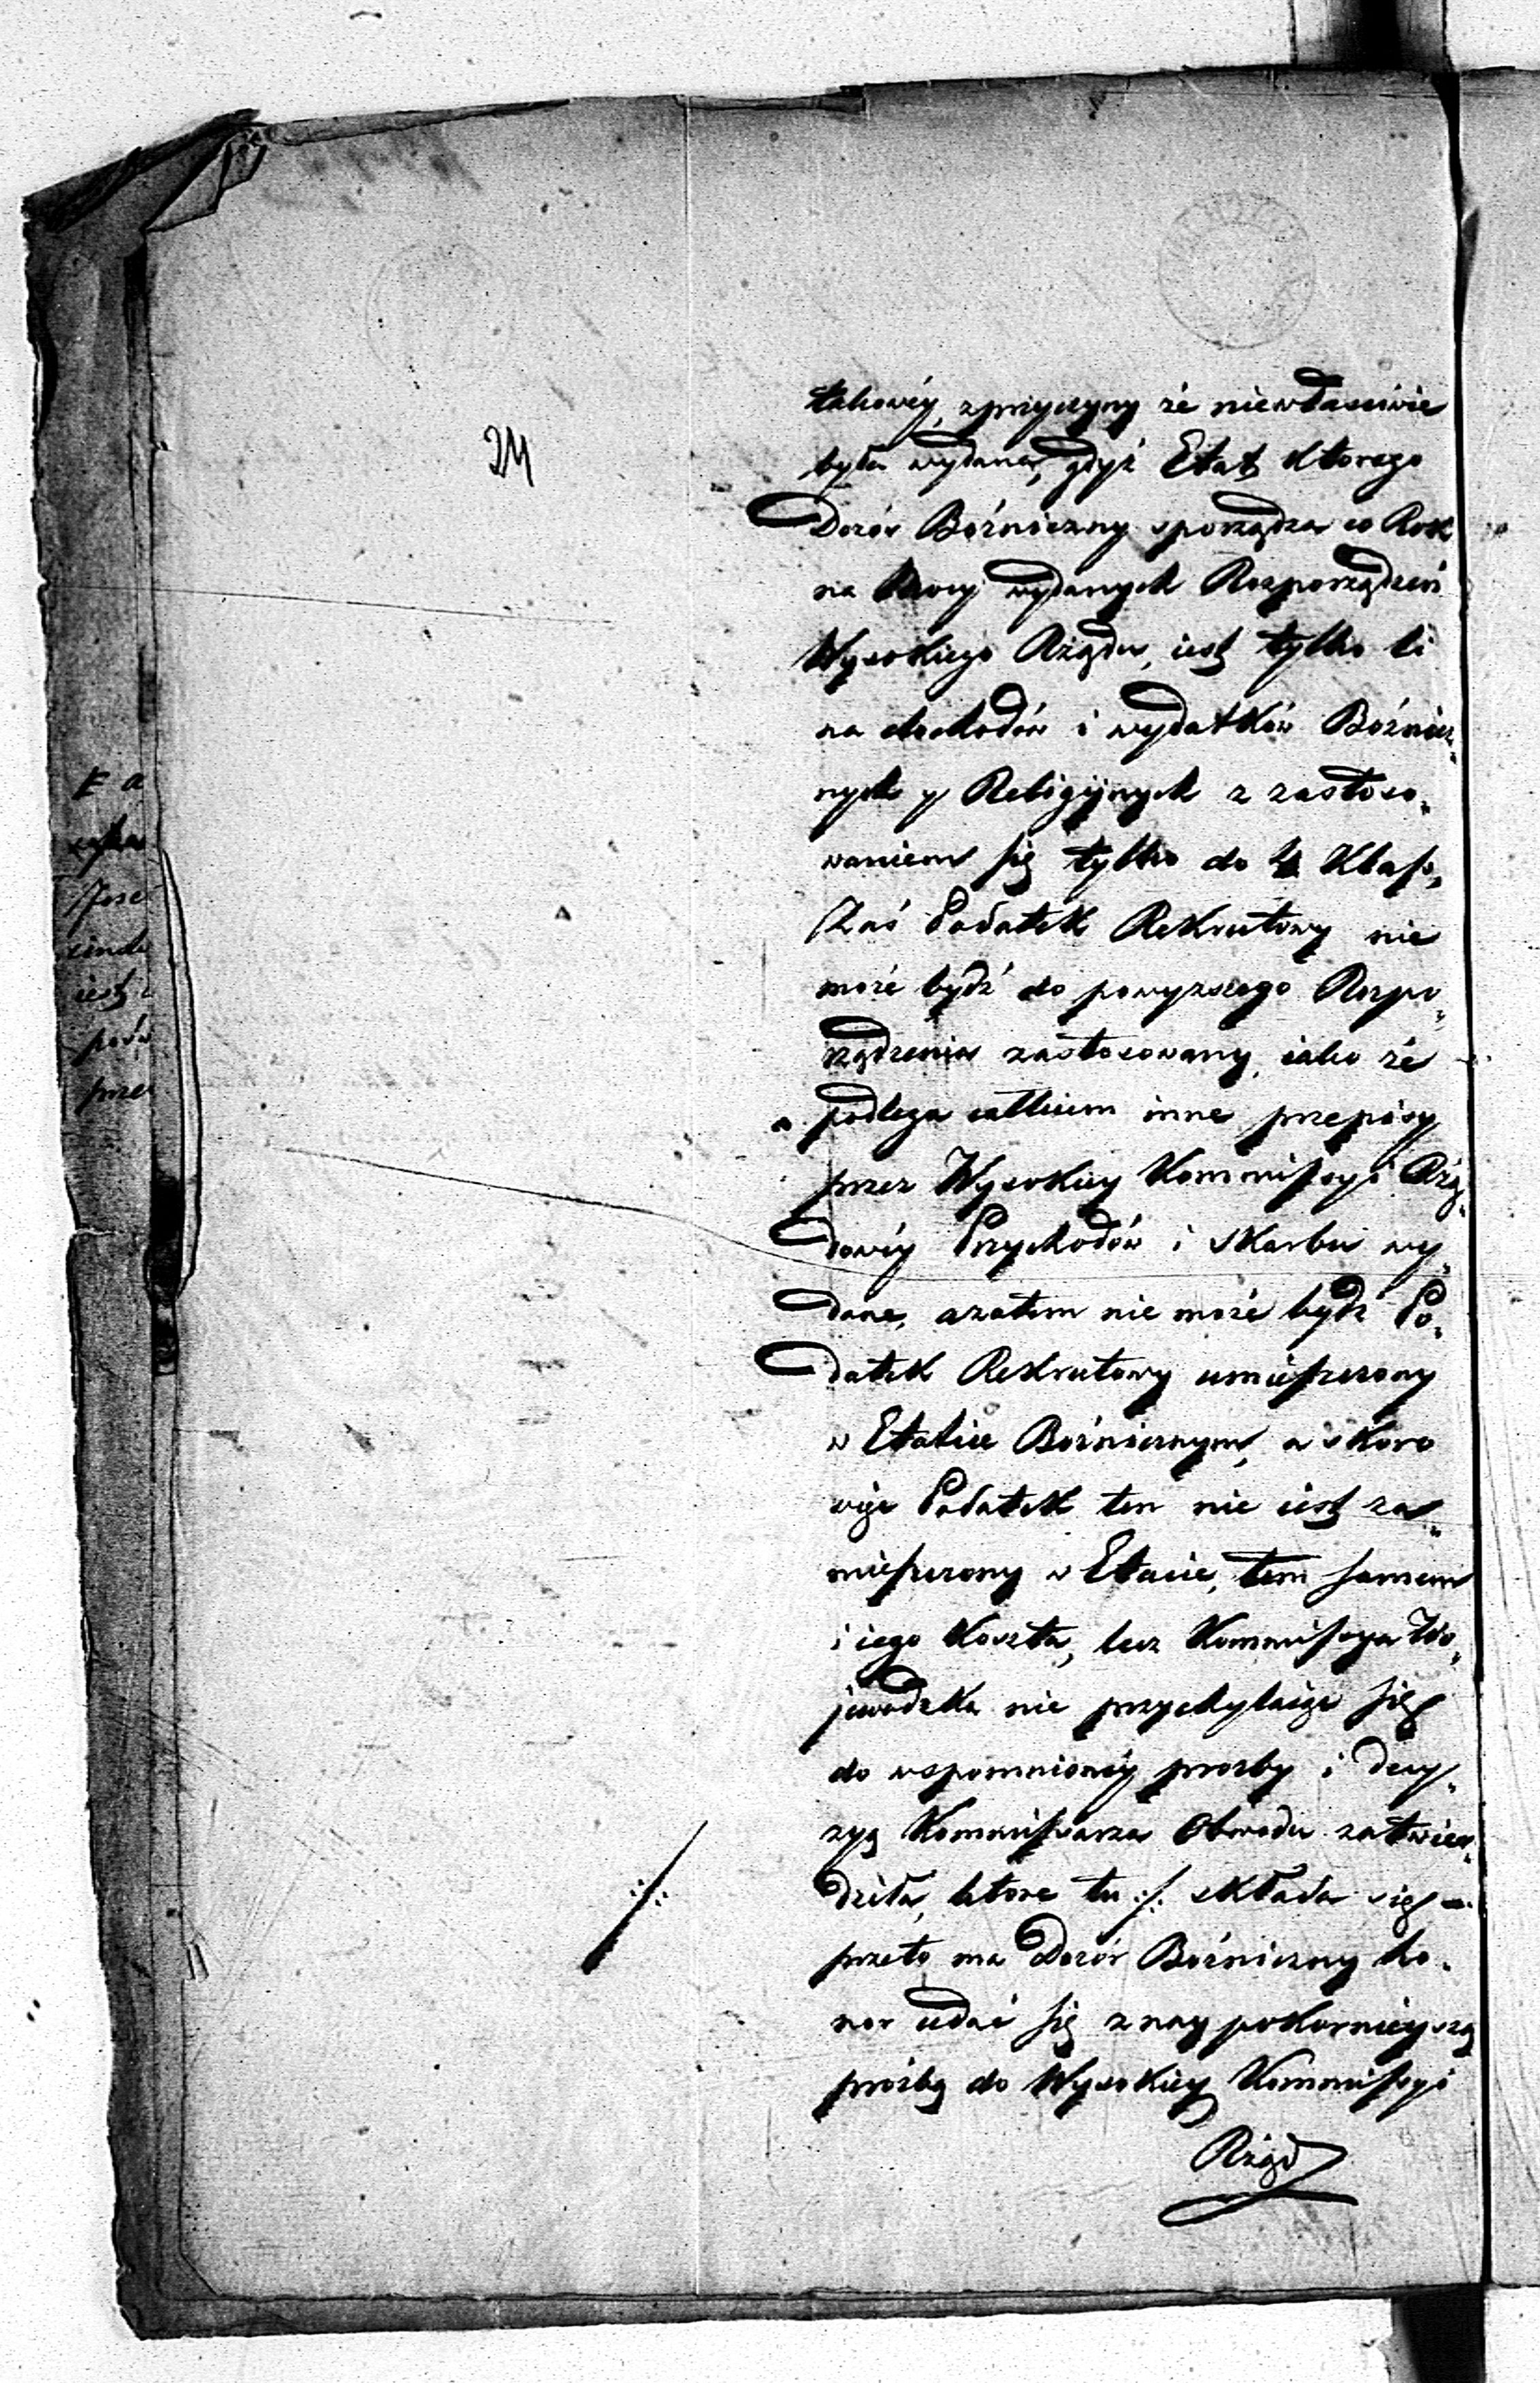 24
takowéy, zprzyczyny że niewłasciwie
była wydana, gdyż Etat ktorego
Dozór Bóźniczny sporządza co Rok
na Mocy wydanych Rozporządzeń
Wysokiego Rządu, iest tylko li
na dochodów i wydatków Bóźnicz„
nych y Religijnych z zastoso„
waniem się tylko do 4 Klass,
Zaś Podatek Rekrutowy nie
może bydź do powyzszego Rozpo„
rządzenia zastosowany, iako że
podlega całkiem inne przepisy
przez Wysokiey Kommissyi Rzą„
dowéy Przychodów i Skarbu wy„
dane, azatem nie może bydź Po„
datek Rekrutowy umieszczony
w Etacie Bóźnicznym, a skoro
więc Podatek ten nie iest za„
mieszczony w Etacie, tem samem
i iego Koszta, lecz Kommissya Wo„
jewodzka nie przychylaiąc się
do wspomnionéy prozby i decy„
zyą Kommissarza Obwodu zatwier„
dziła, ktore tu ./. składa się
przeto ma Dozór Bóźniczny ho„
nor udać się znaypokornieyszą
prozbą do Wysokiey Kommissyi
Rząd
./.
iest
przez